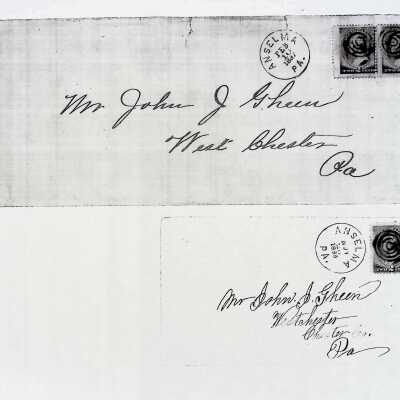 ANSELMA
FEB
PA.
Mr John J Gheen
West Chester
Pa
ANSELMA
PA.
Mr John J. Gheen
Westchester
Chester Co.
Pa